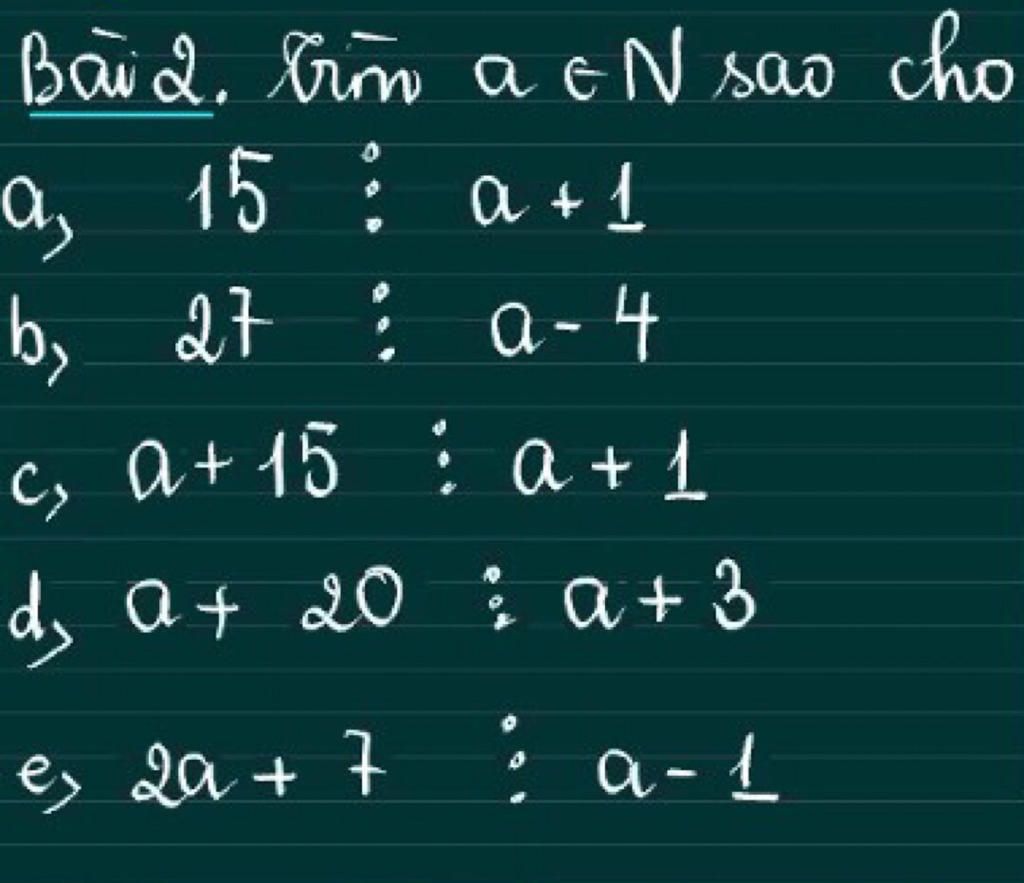 Bài 2. Tìm a ∈ N sao cho
a, 15 ⋮ a + 1
b, 27 ⋮ a - 4
c, a + 15 ⋮ a + 1
d, a + 20 ⋮ a + 3
e, 2a + 7 ⋮ a - 1